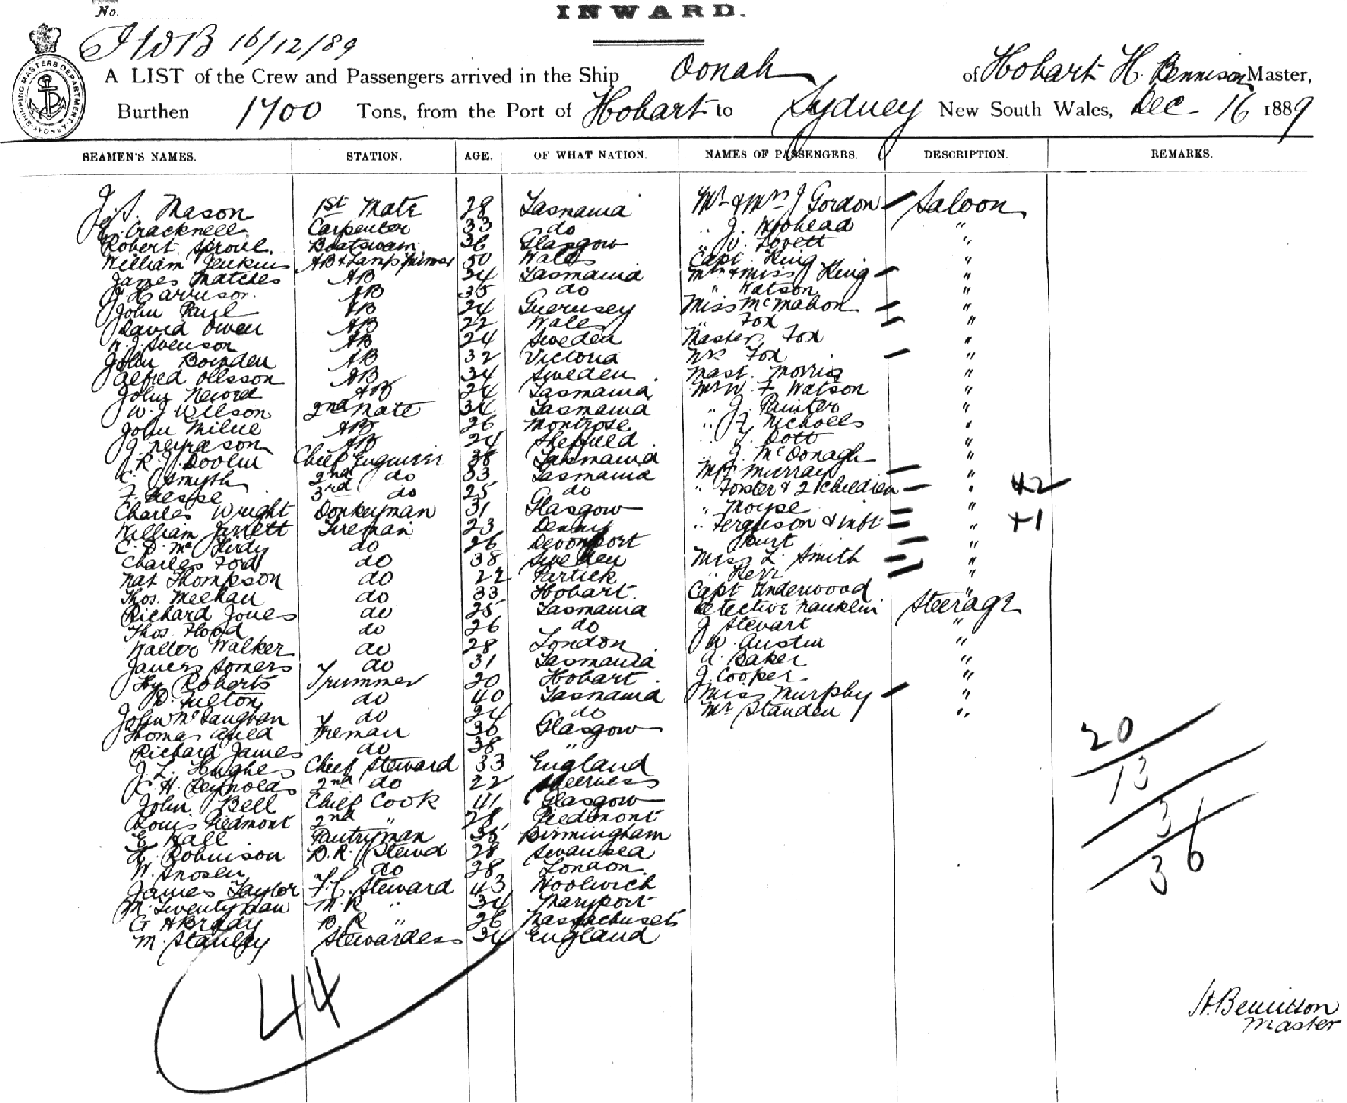 No.
INWARD.
JWB 16/12/89
A LIST of the Crew and Passengers arrived in the Ship Oonah of Hobart H. Bennison Master,
Burthen 1700 Tons, from the Port of Hobart to Sydney New South Wales, Dec - 16 1889
SEAMEN'S NAMES. STATION. AGE. OF WHAT NATION. NAMES OF PASSENGERS. DESCRIPTION. REMARKS.
Mason 1st Mate 28 Tasmania Mr & Mrs J Gordon Saloon
Cracknell Carpenter 33 do " J. "
Robert Sproul Boatswain 36 Glasgow " Lovett "
William Jenkins AB & Lamp trimmer 50 Wales Capt King "
James Matches AB 24 Tasmania Mrs & Miss King "
J Harrison AB 35 do " Watson "
John AB 24 Guernsey Miss McMahon "
David Owen AB 22 Wales " Fox "
Svenson AB 24 Sweden Master Fox "
John Bowden AB 32 Victoria Mr Fox "
Alfred Olsson AB 34 Sweden Mast. Morris "
John AB 24 Tasmania Mr W. F Watson "
W. J Wilson 2nd Mate 34 Tasmania " J. "
John Milne AB 26 Montrose " Nicholls "
AB 24 Sheffield " Dott "
Chief Engineer 38 Tasmania " J. McDonagh "
Smyth 2nd do 33 Tasmania Mrs Murray "
F. 3rd do 25 do " Foster & 2 children " +2
Charles Wright Donkeyman 31 Glasgow " "
William Jarrett Fireman 23 " Ferguson & inft " +1
C. D. do 26 Devonport "
Charles Ford do 38 Sweden Miss L. Smith "
Nat Thompson do 22 Partick " Kerr "
Thos. Meehan do 33 Hobart Capt Underwood "
Richard Jones do 25 Tasmania Detective Franklin Steerage
Thos. Flood do 26 do J Stewart "
Walter Walker do 28 London W. Austin "
James Somers do 31 Tasmania A. Baker "
Hy Roberts Trimmer 20 Hobart J. Cooper "
D. Fulton do 40 Tasmania Miss Murphy "
John McLaughan do 24 do Mr Standen "
Thomas Fireman 30 Glasgow
Richard James do 38 "
J. L. Hughes Chief Steward 33 England
C. H. Reynolds 2nd do 22
John Bell Chief Cook 41 Glasgow
Louis Piedmont 2nd " 28 Piedmont
E Hall Pantryman 35 Birmingham
Robinson B.R. Stewd 28 Swansea
W. do 28 London
James Taylor F.C. Steward 43 Woolwich
M. Twentyman M.R. " 34 Maryport
G H Brady B R " 26 Massachusets
M. Stanley Stewardess 34 England
44
20
13
3
36
H. Bennison
Master